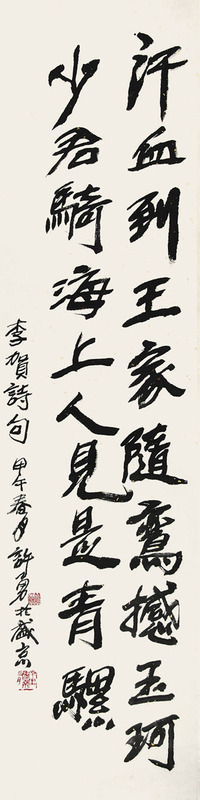 汗血到王家隨鸞撼玉珂
少君騎海上人見是青騾
李賀詩句
甲午春月許勇於盛京